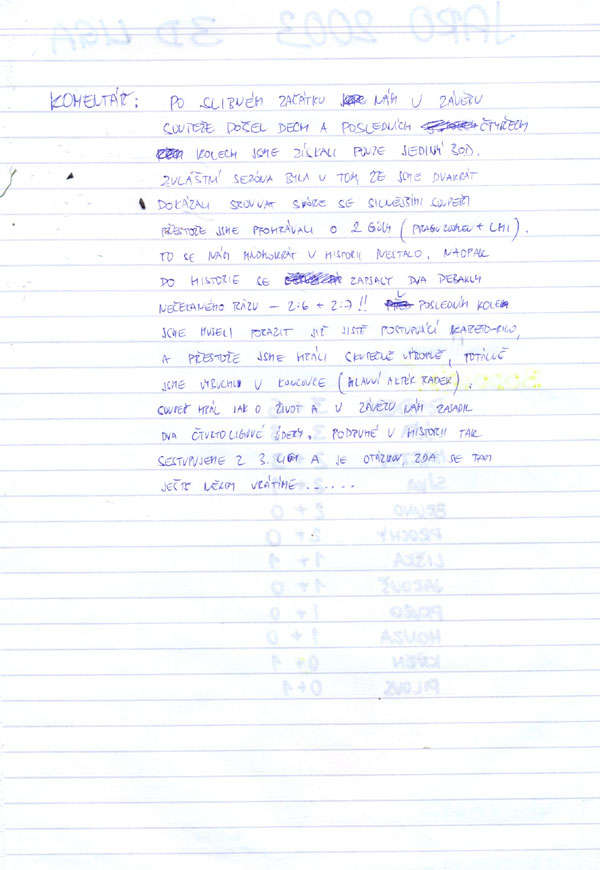 KOMENTÁŘ: PO SLIBNÉM ZAČÁTKU NÁM V ZÁVĚRU
SOUTĚŽE DOŠEL DECH A POSLEDNÍCH ČTYŘECH
KOLECH JSME ZÍSKALI POUZE JEDINÝ BOD.
ZVLÁŠTNÍ SEZÓNA BYLA V TOM, ŽE JSME DVAKRÁT
DOKÁZALI SROVNAT SKÓRE SE SILNĚJŠÍMI SOUPEŘI
PŘESTOŽE JSME PROHRÁVALI O 2 GÓLY ( + LMI).
TO SE NÁM MNOHOKRÁT V HISTORII NESTALO, NAOPAK
DO HISTORIE SE ZAPSALY DVA DEBAKLY
NEČEKANÉHO RÁZU – 2:6 + 2:7!! V POSLEDNÍM KOLE
JSME MUSELI PORAZIT JIŽ JISTĚ POSTUPUJÍCÍ
A PŘESTOŽE JSME HRÁLI SKUTEČNĚ VÝBORNĚ, TOTÁLNĚ
JSME VYBUCHLI V KONCOVCE (HLAVNÍ AKTÉR RADEK).
SOUPEŘ HRÁL JAK O ŽIVOT A V ZÁVĚRU NÁM ZASADIL
DVA ČTVRTOLIGOVÉ ÚDERY. PODRUHÉ V HISTORII TAK
SESTUPUJEME Z 3. LIGY A JE OTÁZKOU, ZDA SE TAM
JEŠTĚ NĚKDY VRÁTÍME......
JARO 2003 3D LIGA
SÍVA
BRUNO 2+0
PROCHY 2+0
LIŠKA 1+1
JAKOUŠ 1+0
1+0
HONZA 1+0
0+1
PILOUS 0+1